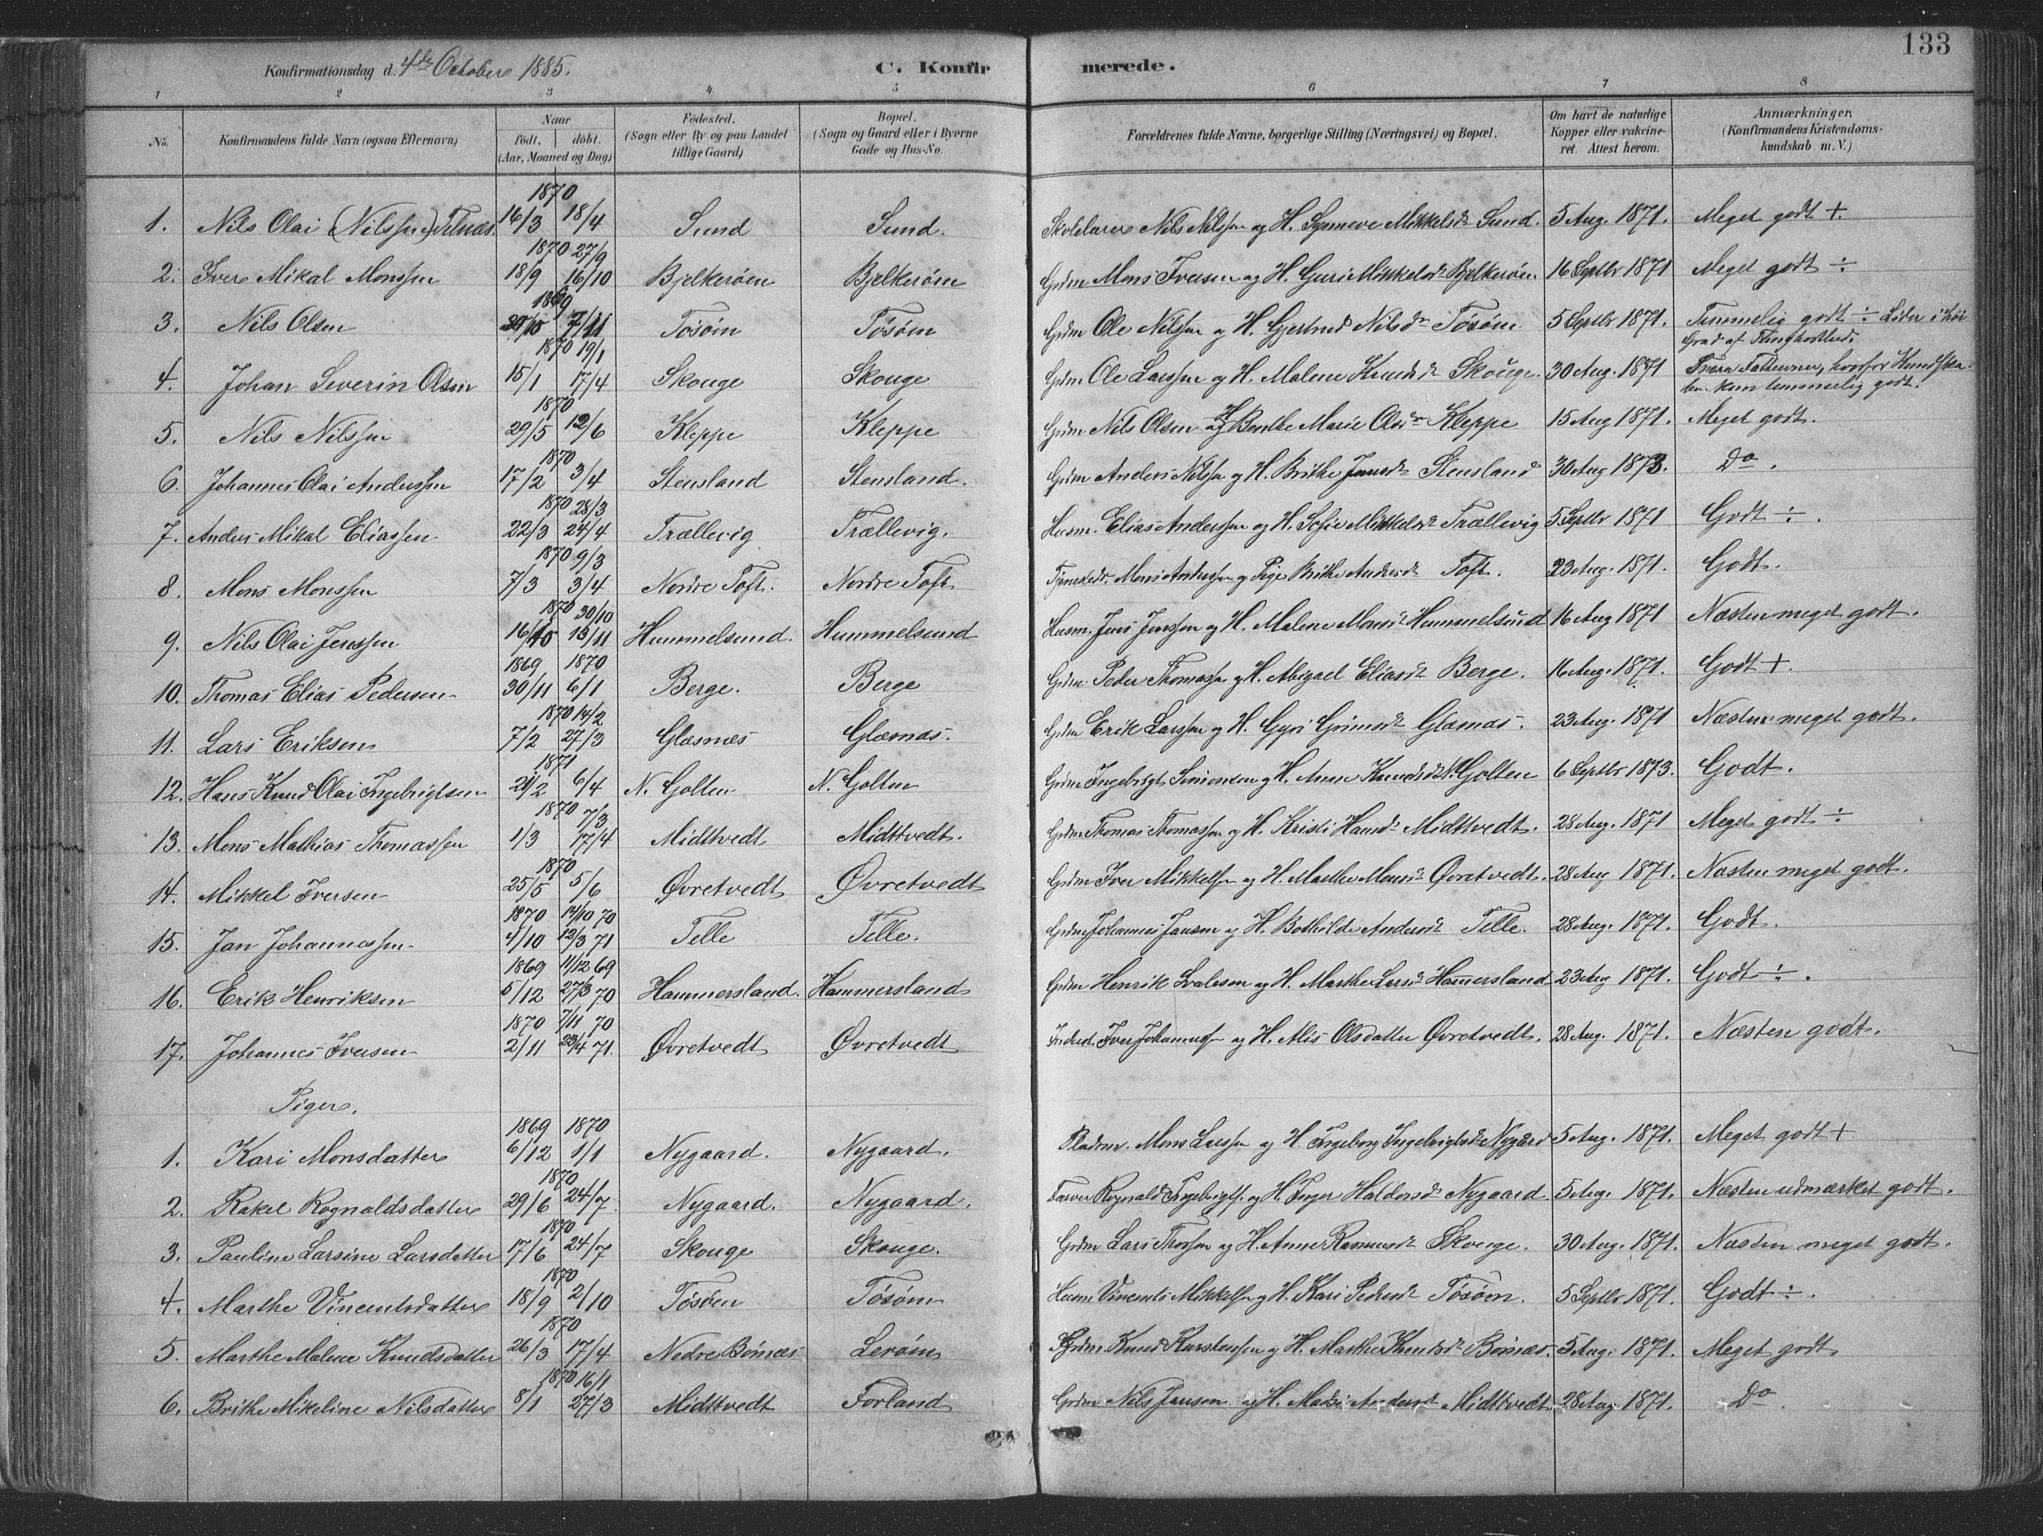 133
Konfirmationsdag d. 4de October 1885.
C. Konfirmerede.
1 2 3 4 5 6 7 8
No.
Konfirmandens fulde Navn (ogsaa Efternavn)
Naar
født. døbt.
(Aar, Maaned og Dag)
Fødested.
(Sogn eller By og paa Landet
tillige Gaard)
Bopæl.
(Sogn og Gaard eller i Byerne
Gade og Hus-No.
Forældrenes fulde Navne, borgerlige Stilling (Næringsvei) og Bopæl.
Om havt de naturlige
Kopper eller vakcine-
ret. Attest herom.
Anmærkninger,
(Konfirmandens Kristendoms-
kundskab m. V.)
1870
1. Nils Olai (Nilssen) Telnæs. 16/3 18/4 Sund Sund. Skolelærer Nils Nilssen og H. Synneve Mikkelsdr Sund. 5 Aug. 1871. Meget godt +.
1870 27/9
2. Iver Mikal Monssen 18/9 16/10 Bjelkerøen Bjelkerøen Grdm Mons Iversen og H. Guri Mikkelsdr Bjelkerøen. 16 Septbr 1871 Meget godt ÷
1869
3. Nils Olsen 7/11 Tøsøen Tøsøen Grdm Ole Nilssen og H. Gjertrud Nilsdr Tøsøen 5 Septbr 1871. Temmelig godt ÷ Lider i høi
Grad af
1870 19/1
4. Johan Severin Olsen 15/1 17/4 Skouge Skouge Grdm Ole Larssen og H. Malene Knudsdr Skouge. 30 Aug. 1871 hvorfor Kundska-
ben kun temmelig godt.
1870
5. Nils Nilssen 29/5 12/6 Kleppe Kleppe Grdm Nils Olsen og H. Benthe Marie Olsdr Kleppe 15 Aug 1871. Meget godt.
1870
6. Johannes Olai Anderssen 17/2 3/4 Stensland Stensland. Grdm Anders Nilssen og H. Brithe Jansdr Stensland 30 Aug 1873. Do.
1870 28/3
7. Anders Mikal Eliassen 22/3 24/4 Trællevig Trællevig. Husm. Elias Anderssen og H. Sofie Mikkelsdr Trællevig 5 Septbr 1871 Godt ÷.
1870 9/3
8. Mons Monssen 7/3 3/4 Nordre Toft. Nordre Toft Mons Anderssen og Pige Brithe Andersdr Toft. 23 Aug. 1871. Godt.
1870 30/10
9. Nils Olai Jenssen 16/10 13/11 Hummelsund. Hummelsund Husm. Jens Jenssen og H. Malene Monsdr Hummelsund 16 Aug 1871 Næsten meget godt.
1869 1870
10. Thomas Elias Pedersen 30/11 6/1 Berge. Berge Grdm Peder Thomassen og H. Abigael Eliasdr Berge. 16 Aug. 1871. Godt +.
1870 14/2
11. Lars Eriksen 7/2 27/3 Glæsnæs Glæsnæs. Grdm Erik Larssen og H. Gyri Grimsdr Glæsnæs. 23 Aug. 1871 Næsten meget godt.
1871
12. Hans Knud Olai Ingebrigtsen 21/2 6/4 N. Golten N. Golten Grdm Ingebrigt Simonsen og H. Anne Knudsdr N. Golten 6 Septbr 1873. Godt.
1870 7/3
13. Mons Mathias Thomassen 1/3 17/4 Midttvedt Midttvedt. Grdm Thomas Thomassen og H. Kristi Hansdr Midttvedt. 28 Aug. 1871 Meget godt ÷
1870
14. Mikkel Iversen 25/5 5/6 Øvretvedt Øvretvedt Grdm Iver Mikkelsen og H. Marthe Monsdr Øvretvedt. 28 Aug 1871. Næsten meget godt.
1870 14/10 70
15. Jan Johannessen 4/10 12/3 71 Telle Telle. Grdm Johannes Jansen og H. Bothilde Andersdr Telle. 28 Aug. 1871. Godt.
1869 11/12 69
16. Erik Henriksen 5/12 27/3 70 Hammersland. Hammersland Grdm Henrik og H. Marthe Larsdr Hammersland 23 Aug 1871. Godt ÷.
1870 7/11 70
17. Johannes Iversen 2/11 23/4 71. Øvretvedt Øvretvedt Inderst. Iver Johannessen og H. Alis Olsdatter Øvretvedt. 28 Aug. 1871. Næsten godt.
Piger.
1869 1870
1. Kari Monsdatter 6/12 1/1 Nygaard. Nygaard. Pladsm. Mons Larssen og H. Ingeborg Ingebrigtsdr Nygaard 5 Aug. 1871. Meget godt +
1870
2. Rakel Rognaldsdatter 29/6 24/7 Nygaard. Nygaard. Farver Rognald Ingebrigts. og H. Inger Haldorsdr Nygaard. 5 Aug. 1871. Næsten udmærket godt.
1870
3. Pauline Larsine Larsdatter 17/6 24/7 Skouge Skouge. Grdm Lars og H. Anne Rasmusdr Skouge. 30 Aug. 1871. Næsten meget godt.
1870
4. Marthe Vincentsdatter 18/9 2/10 Tøsøen Tøsøen Husm Vincents Mikkelsen og H. Kari Pedersdr Tøsøen. 5 Septbr 1871. Godt ÷.
1870
5. Marthe Malene Knudsdatter 26/3 17/4 Nedre Børnæs Lerøen Grdm Knud Karstenssen og H. Marthe Knudsdr Børnæs. 5 Aug. 1871. Meget godt
1870 16/1
6. Brithe Mikeline Nilsdatter 8/1 27/3 Midttvedt Forland Grdm Nils Jansen og H. Andersdr Midttvedt 28 Aug 1871. Do.